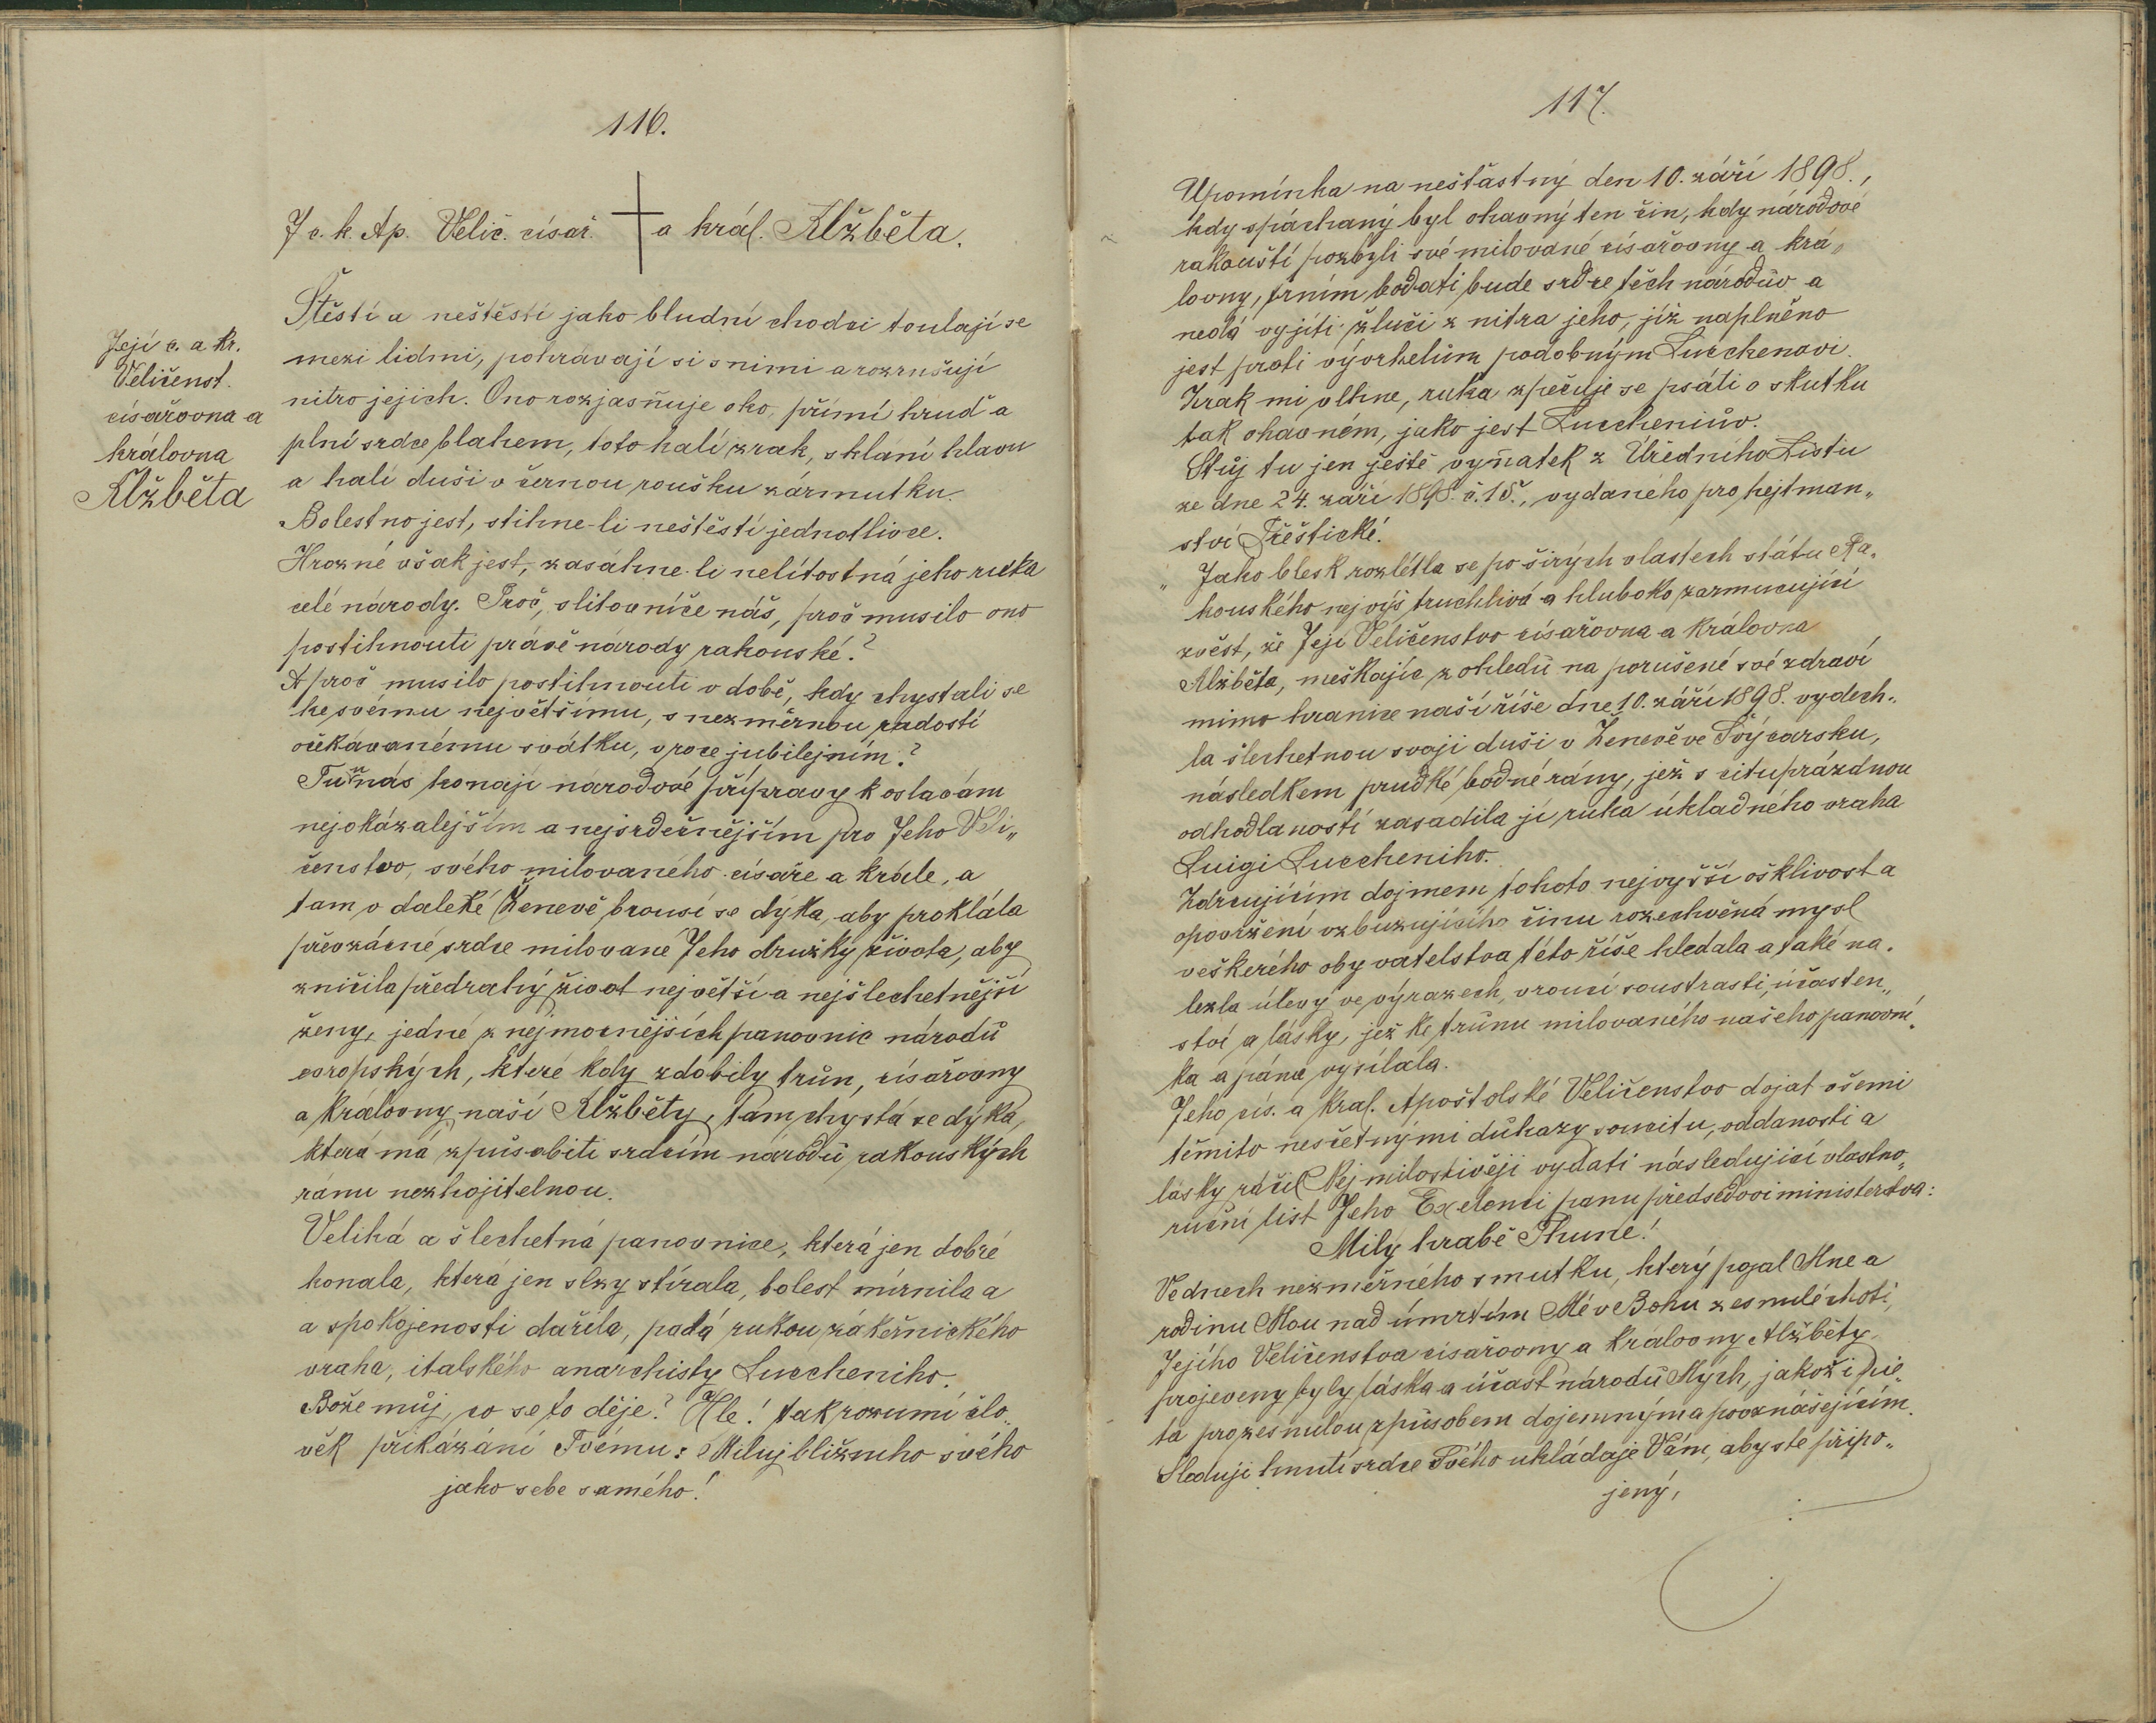 116.
J c. k. Ap. Velič. císař. a král. Alžběta.
Její c. a kr.
Veličenst.
císařovna a
královna
Alžběta
Štěstí a neštěstí jako bludní chodci toulají se
mezi lidmi, pohrávají si s nimi a rozrušují
nitro jejich. Ono rozjasňuje oko, přímí hruď a
plní srdce blahem, toto halí zrak, sklání hlavu
a halí duši v černou roušku zármutku.
Bolestno jest, stihne-li neštěstí jednotlivce.
Hrozné však jest, zasáhne-li nelítostná jeho ruka
celé národy. Proč, slitovníče náš, proč musilo ono
postihnouti právě národy rakouské?
A proč musilo postihnouti v době, kdy chystali se
ke svému největšímu, s nezměrnou radostí
očekávanému svátku, v roce jubilejním?
Tu u nás konají národové přípravy k oslavám
nejokázalejším a nejsrdečnějším pro Jeho Veli„
čenstvo, svého milovaného císaře a krále, a
tam v daleké Ženevě brousí se dýka, aby proklála
převzácné srdce milované Jeho družky života, aby
zničila předrahý život největší a nejšlechetnější
ženy, jedné z nejmocnějších panovnic národů
evropských, které kdy zdobily trůn, císařovny
a královny naší Alžběty, tam chystá se dýka,
která má způsobiti srdcím národů rakouských
ránu nezhojitelnou.
Veliká a šlechetná panovnice, která jen dobré
konala, která jen slzy stírala, bolest mírnila a
a spokojenosti dařila, padá rukou zákeřnického
vraha, italského anarchisty Luccheniho.
Bože můj, co se to děje? Hle! tak rozumí člo„
věk přikázání Tvému: Miluj bližního svého
jako sebe samého!
117.
Upomínka na nešťastný den 10. září 1898.,
kdy spáchaný byl ohavný ten čin, kdy národové
rakouští pozbyli své milované císařovny a krá„
lovny, trním bodati bude srdce těch národův a
nedá vyjíti žluči z nitra jeho, jíž naplněno
jest proti vývrhelům podobným Lucchenovi.
Zrak mi vlhne, ruka zpečuje se psáti o skutku
tak ohavném, jako jest Luccheniův.
Stůj tu jen ještě vyňatek z Úředního Listu
ze dne 24. září 1898. č. 15., vydaného pro hejtman„
ství Třeštické.
„ Jako blesk rozlétla se po širých vlastech státu Ra„
kouského nejvýš truchlivá a hluboko zarmucující
zvěst, že Její Veličenstvo císařovna a královna
Alžběta, meškajíc z ohledů na porušené své zdraví
mimo hranice naší říše dne 10. září 1898. vydech„
la šlechetnou svoji duši v Ženevě ve Švýcarsku,
následkem prudké bodné rány, jež s cituprázdnou
odhodlaností zasadila jí ruka úkladného vraha
Luigi Luccheniho.
Zdrcujícím dojmem tohoto nejvyšší ošklivost a
opovržení vzbuzujícího činu rozechvěná mysl
veškerého obyvatelstva této říše hledala a také na„
lezla úlevy ve výrazech, vroucí soustrasti, účasten„
ství a lásky, jež ke trůnu milovaného našeho panovní„
ka a pána vysílala.
Jeho cís. a král. Apoštolské Veličenstvo dojat všemi
těmito nesčetnými důkazy soucitu, oddanosti a
lásky ráčil Nejmilostivěji vydati následující vlastno„
ruční list Jeho Exelenci panu předsedovi ministerstva:
Milý hrabě Thune!
Ve dnech nezměrného smutku, který pojal Mne a
rodinu Mou nad úmrtím Mé ve Bohu zesnulé choti,
Jejího Veličenstva císařovny a královny Alžběty
projeveny byly láska a účast národů Mých, jakož i pie„
ta pro zesnulou způsobem dojemným a povznášejícím.
Sleduji hnutí srdce Svého ukládaje Vám, abyste připo„
jený,